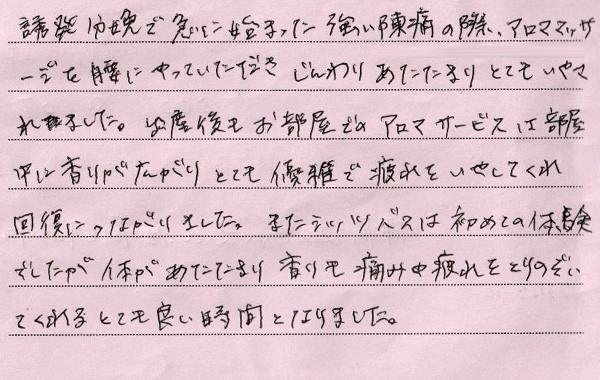 誘発分娩で急に始まった強い陣痛の際、アロママッサ
ージを腰にやっていただき じんわり あたたまり とても いやさ
れました。出産後も お部屋での アロマサービスは 部屋
中に香りが広がり とても 優雅で 疲れを いやしてくれ
回復につながりました。また シッツバスは 初めての体験
でしたが 体が あたたまり 香りも 痛みや疲れを とりのぞい
てくれる とても 良い 時間と なりました。